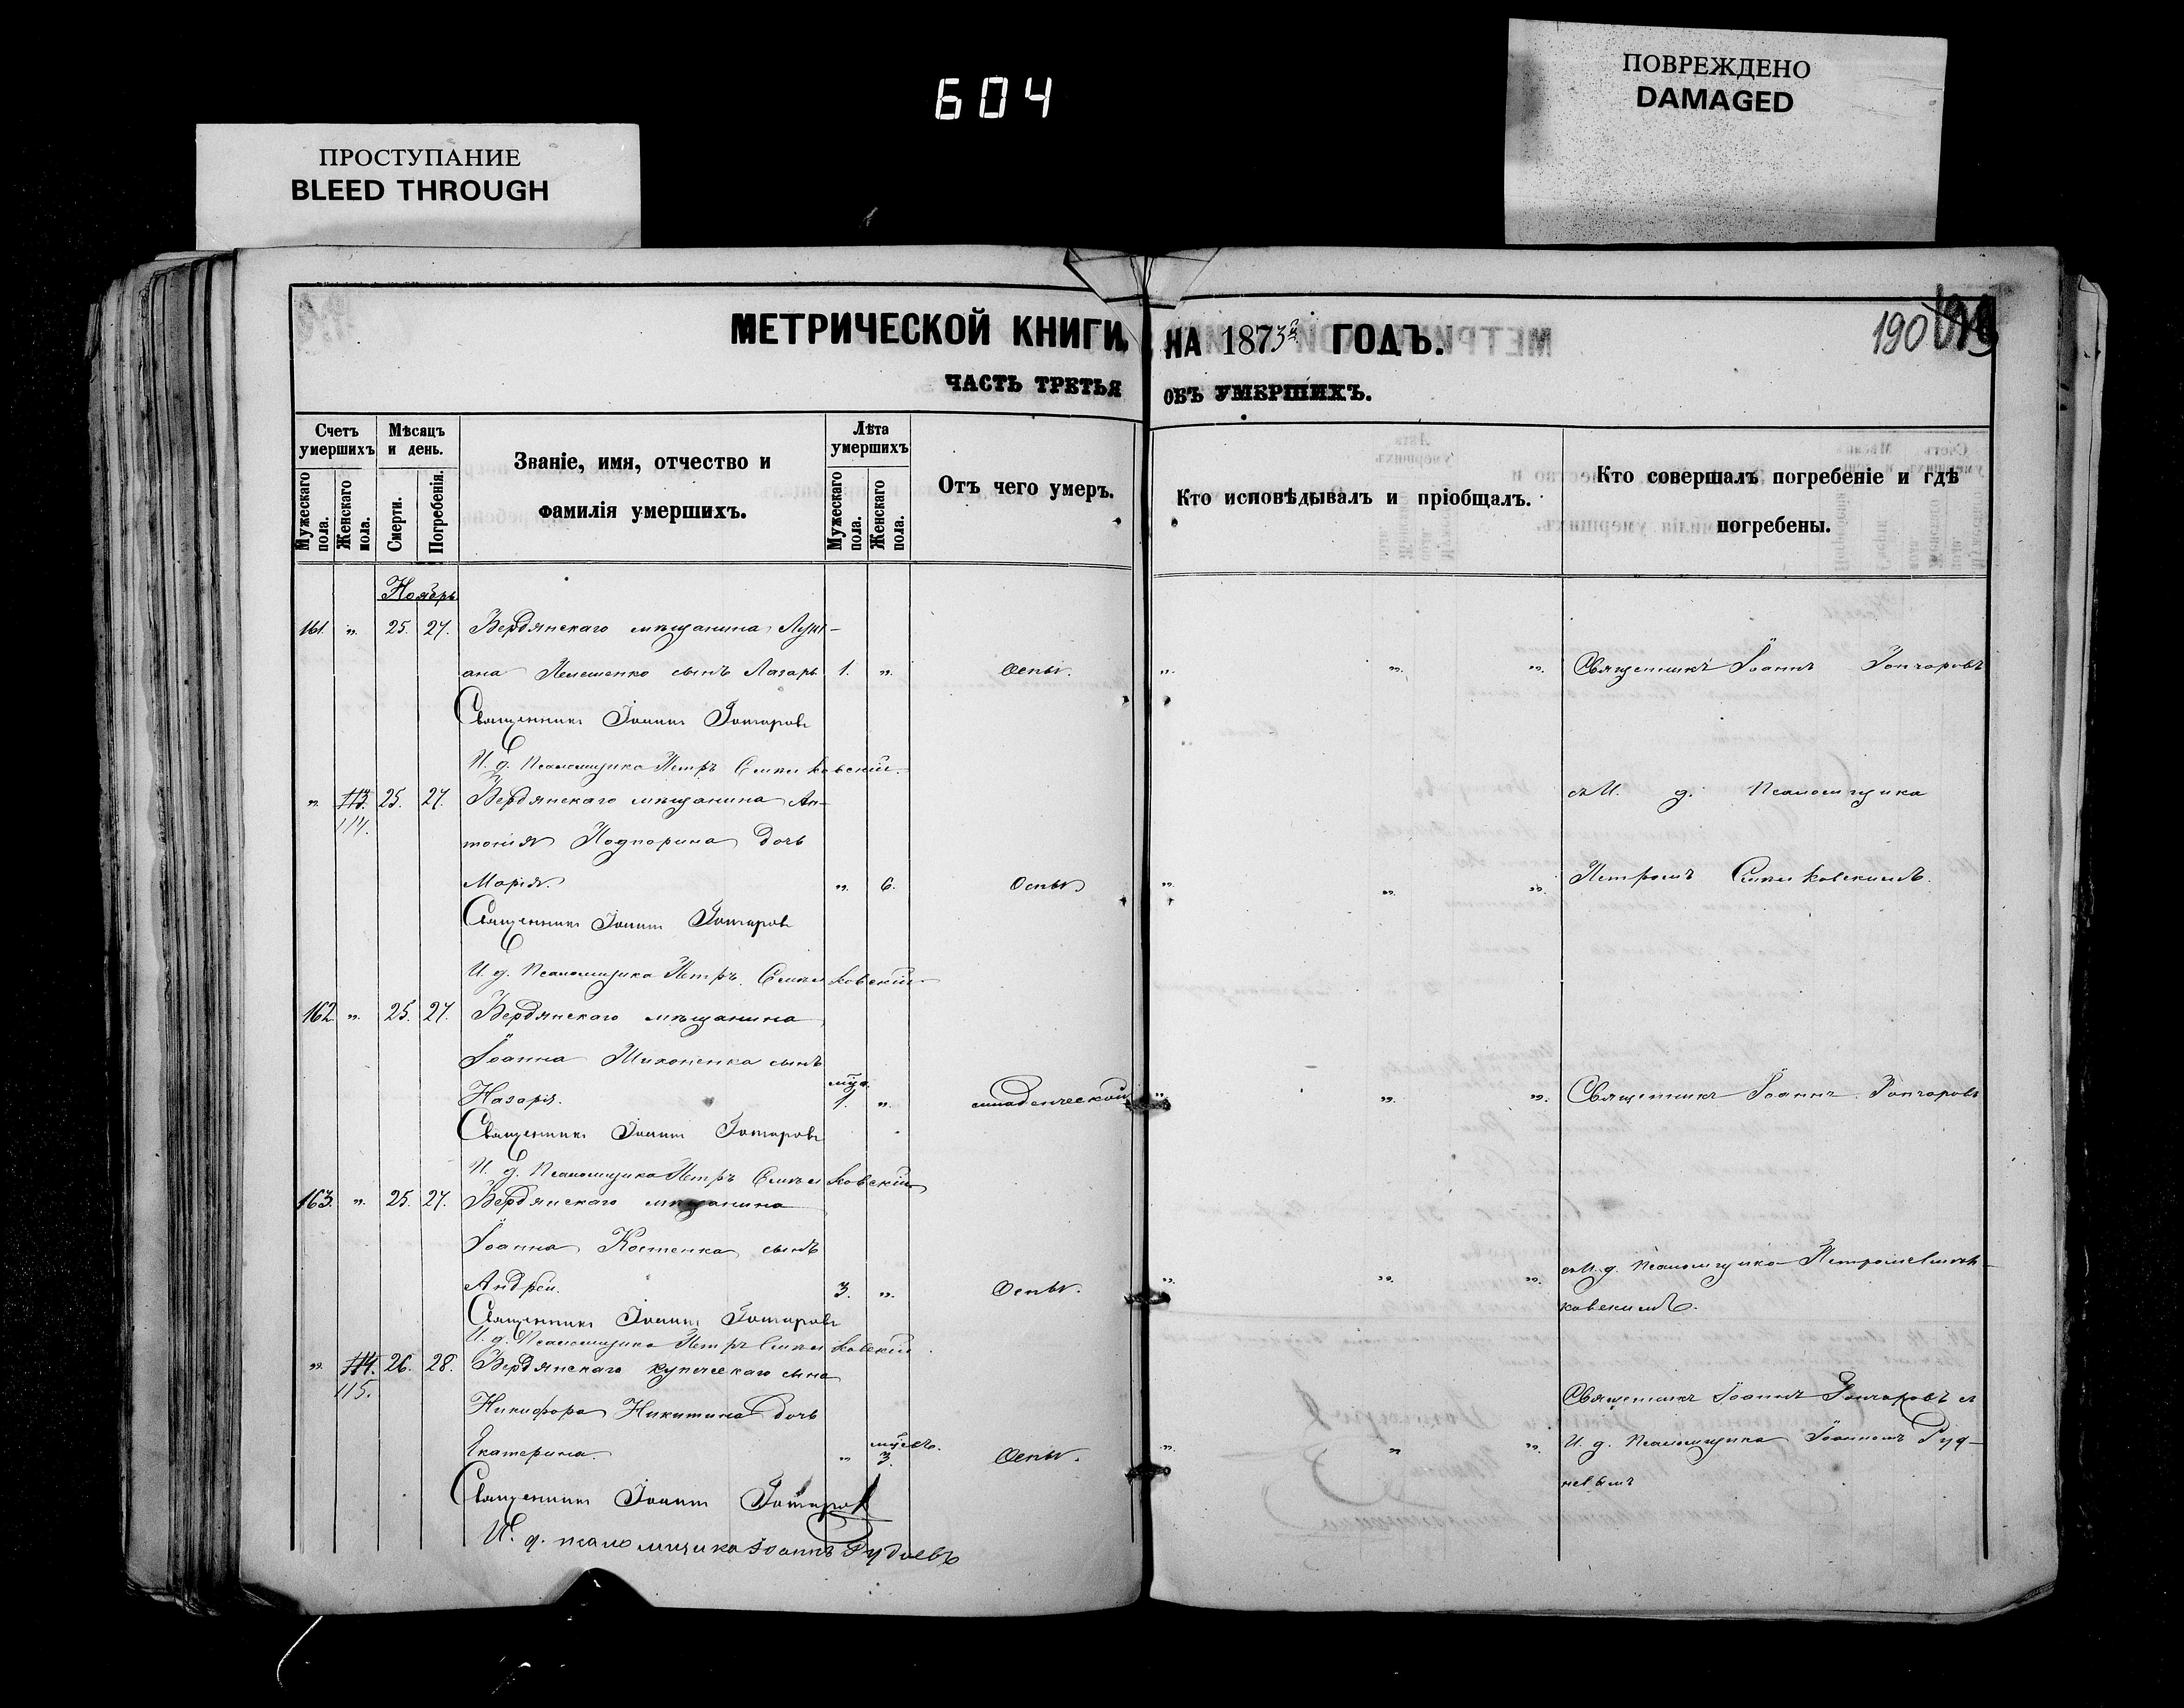 604
ПРОСТУПАНИЕ
BLEED THROUGH
ПОВРЕЖДЕНО
DAMAGED
МЕТРИЧЕСКОЙ КНИГИ, НА 1873й ГОДЪ.
190
ЧАСТЬ ТРЕТЬЯ ОБЪ УМЕРШИХЪ.
Счетъ умершихъ
Мужескаго пола.
Женскаго пола.
Мѣсяцъ и день.
Смерти.
Погребенія.
Званіе, имя, отчество и
фамилія умершихъ.
Лѣта умершихъ
Мужескаго пола.
Женскаго пола.
Отъ чего умеръ.
Кто исповѣдывалъ и пріобщалъ.
Кто совершалъ погребеніе и гдѣ
погребены.
Ноябрь
161. „ 25. 27. Бердянскаго мѣщанина Луки-
ана сынъ Лазарь 1. „ Оспы. „ „ „ Священникъ Іоаннъ Гончаровъ
Священникъ Іоаннъ Гончаровъ
И. д. Псаломщика Петръ
„ 113. 25. 27. Бердянскаго мѣщанина Ан- съ И. д. Псаломщика
114.
тонія Подпорина дочь
Марія. „ 6. Оспы „ „ „ Петромъ
Священникъ Іоаннъ Гончаровъ
И. д. Псаломщика Петръ
162 „ 25. 27. Бердянскаго мѣщанина
Іоанна сынъ
Назарій. мѣс. 1. „ младенческой „ „ „ Священникъ Іоаннъ Гончаровъ
Священникъ Іоаннъ Гончаровъ
И. д. Псаломщика Петръ
163. „ 25. 27. Бердянскаго мѣщанина
Іоанна Костенка сынъ съ И. д. Псаломщика Петромъ
Андрей. 3. „ Оспы. „ „ „
Священникъ Іоаннъ Гончаровъ
И. д. Псаломщика Петръ
„ 114. 26. 28. Бердянскаго купеческаго сына
115.
Никифора Никитина дочь Священникъ Іоаннъ Гончаровъ съ
Екатерина. „ мѣсъ. 3. Оспы. „ „ „ И. д. Псаломщика Іоанномъ Руд-
невымъ
Священникъ Іоаннъ Гончаровъ
И. д. псаломщика Іоаннъ Рудневъ